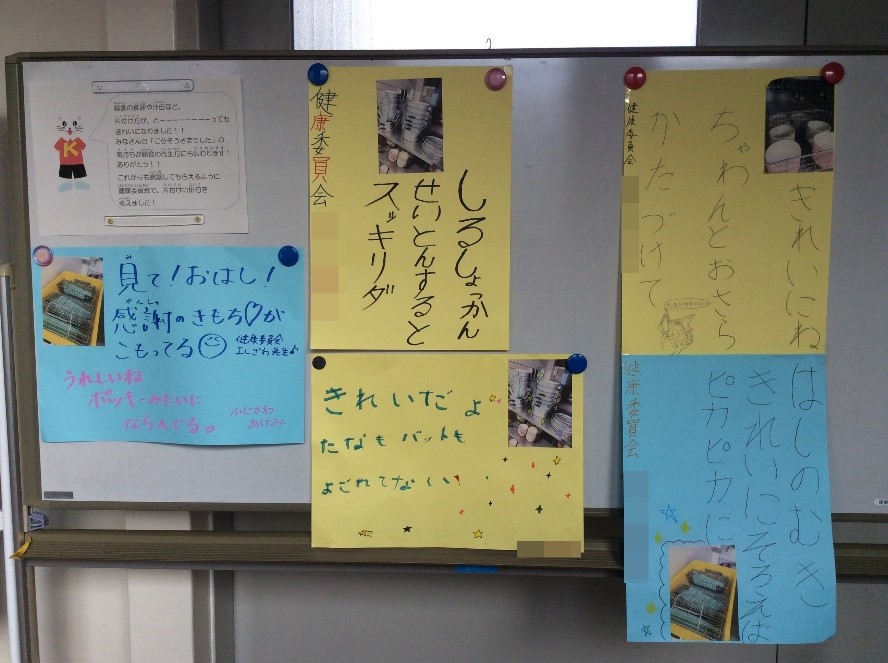 給食の食器や汁皿など、
片付け方が、とーーーーーーーっても
きれいになりました！！
みなさんが「ごちそうさまでした」の
気持ちが給食の先生方にも伝わります！
ありがとう！！
これからも意識してもらえるように
健康委員会で、片付けの俳句を
考えました！
K
見て！おはし！
感謝のきもち♡が
かんしゃ
こもってる
健康委員会
よしざわ先生♪
うれしいね
ポッキーみたいに
ならんでる。
ふじさわ
健康委員会
しるしょっかん
せいとんすると
スッキリダ
きれいだよ
たなもバットも
よごれてない！
健康委員会
きれいにね
ちゃわんとおさら
かたづけて
健康委員会
はしのむき
きれいにそろえば
ピカピカに